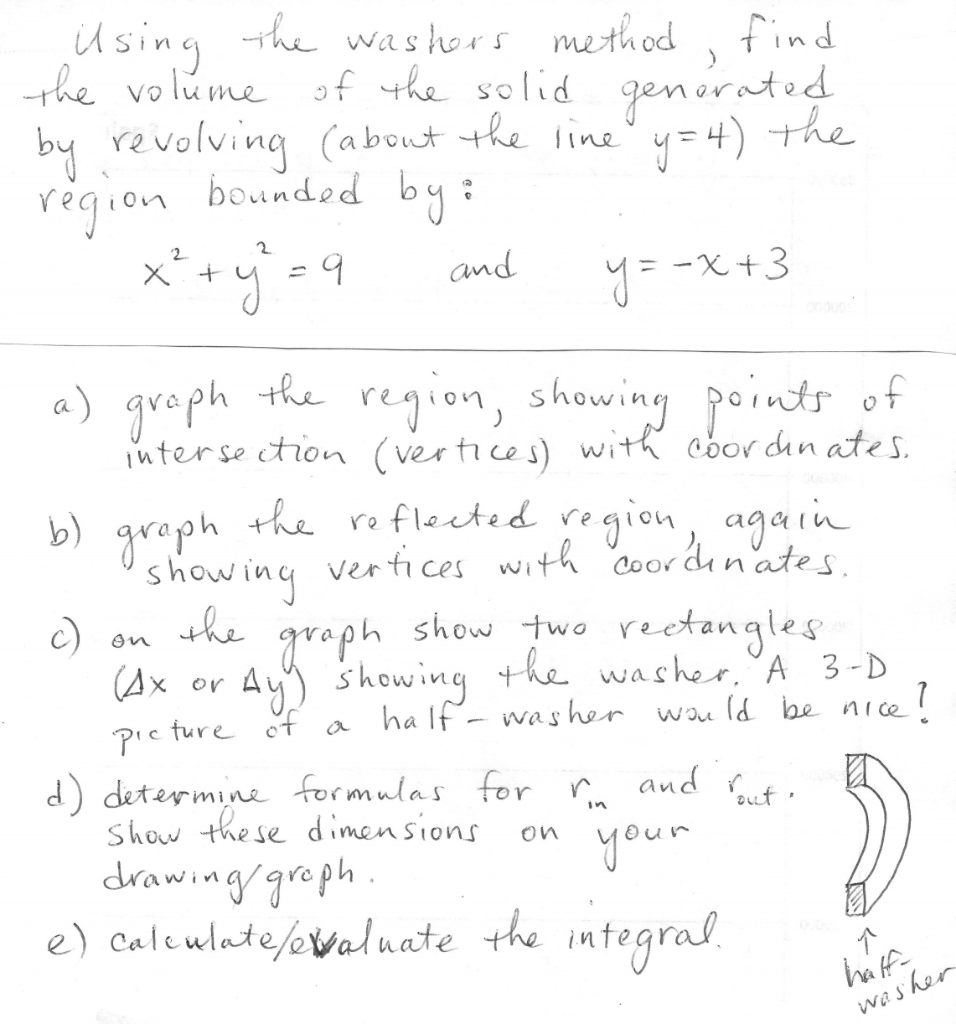 Using the washers method, find
the volume of the solid generated
by revolving (about the line y=4) the
region bounded by:
x² + y² = 9 and y = -x+3
a) graph the region, showing points of
intersection (vertices) with coordinates.
b) graph the reflected region, again
showing vertices with coordinates.
c) on the graph show two rectangles
(Δx or Δy) showing the washer. A 3-D
picture of a half-washer would be nice!
d) determine formulas for r_in and r_out.
Show these dimensions on your
drawing/graph.
e) calculate/evaluate the integral.
↑
half-
washer